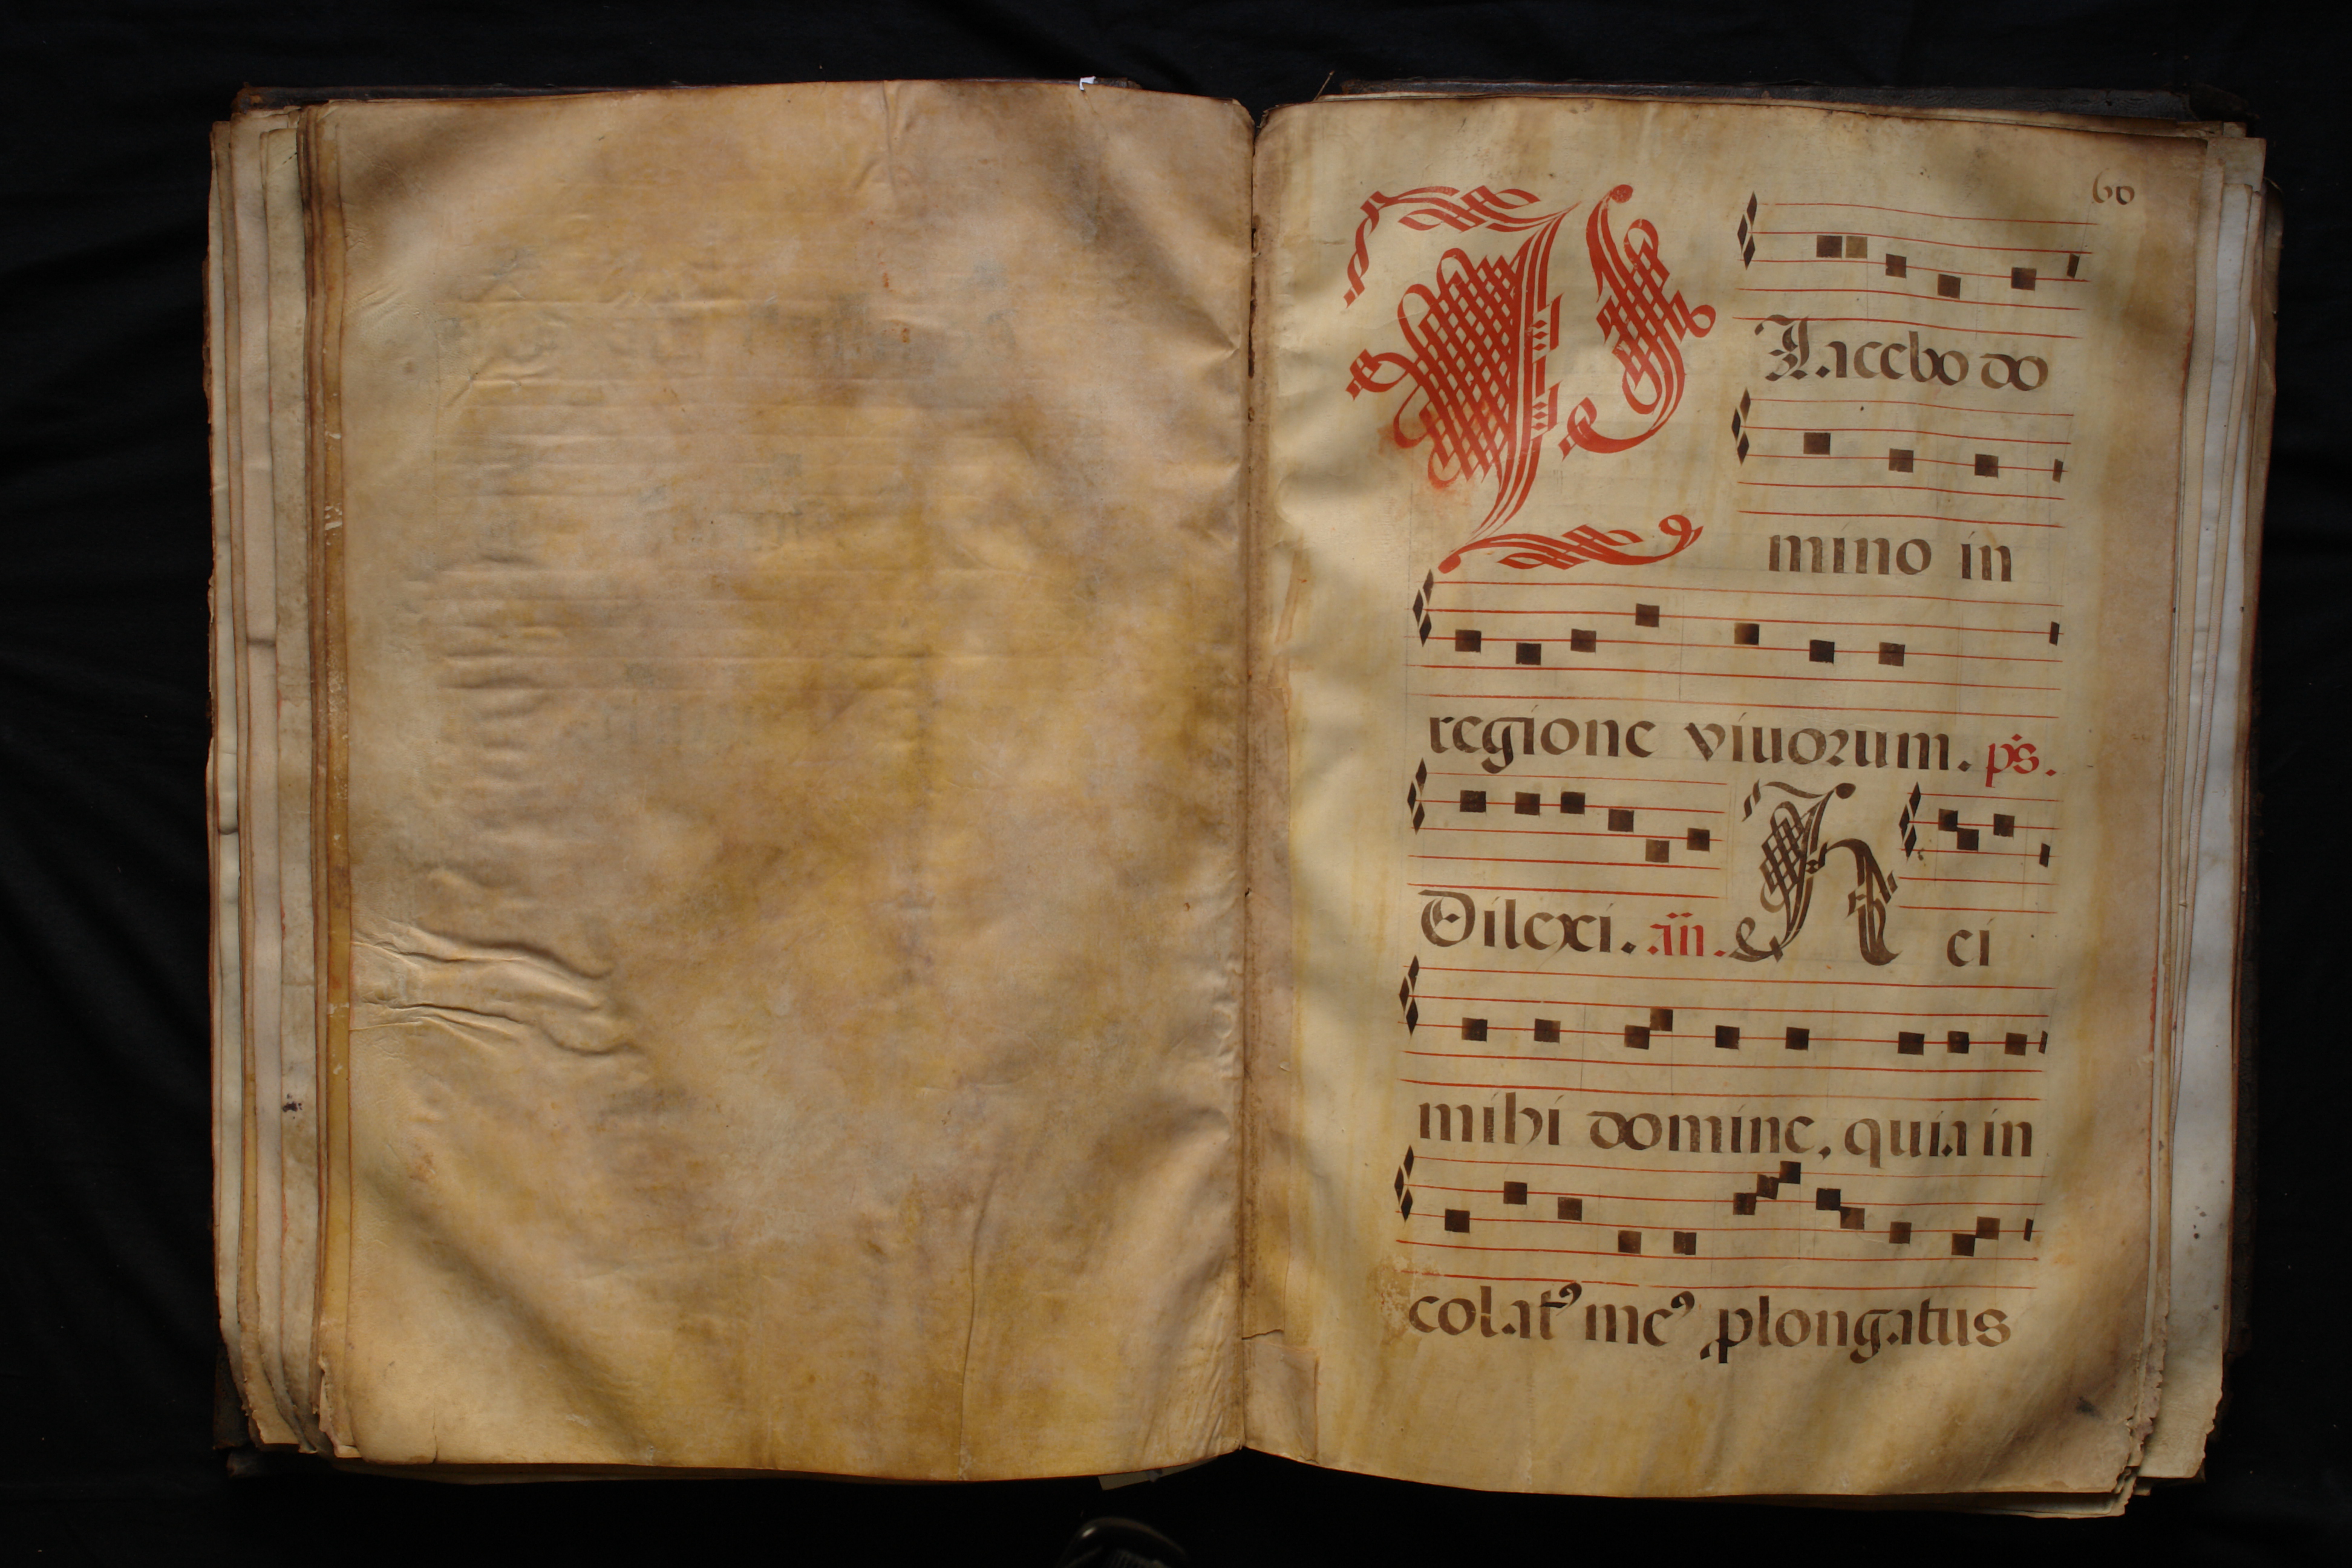 60
PLaccbo do
mino in
regione viuorum. ps.
Dilexi. añ. Hei
mihi domine, quia in
colatꝰ meꝰ ꝓlongatus